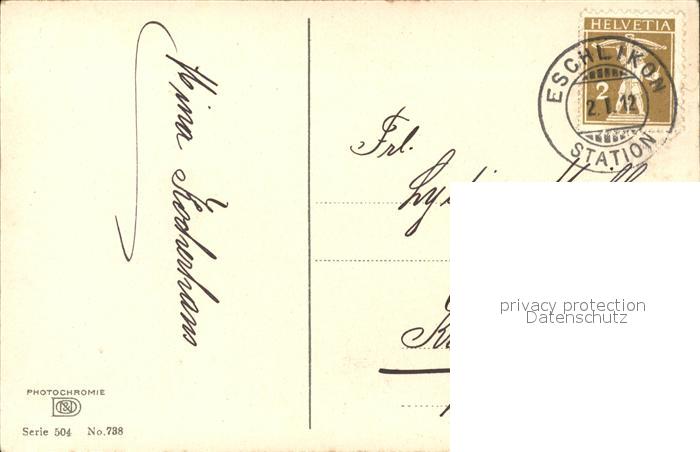 HELVETIA
2
ESCHLIKON
2.I.12
STATION
Frl.
privacy protection
Datenschutz
PHOTOCHROMIE
Serie 504 No. 738